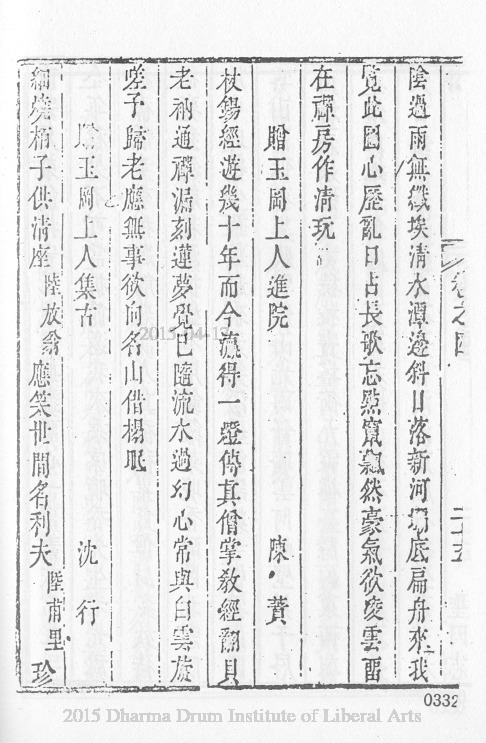 陰過雨無纖埃清水潭邊斜日落新河壩底扁舟來我
覽此圖心歷亂口占長歌忘點竄飄然豪氣欲凌雲畱
在禪房作清玩
贈玉岡上人進院 陳贄
杖錫經遊幾十年而今瀛得一燈傳真僧掌敎經翻貝
老衲通禪漏刻蓮夢覺已隨流水過幻心常與白雲旋
嗟予歸老應無事欲向名山借榻眠
贈玉岡上人集古 沈行
細燒栢子供清座 陸放翁 應笑世間名利夫 陸甫里 珍
卷之四 二十五
0332
2015-04-13
2015 Dharma Drum Institute of Liberal Arts